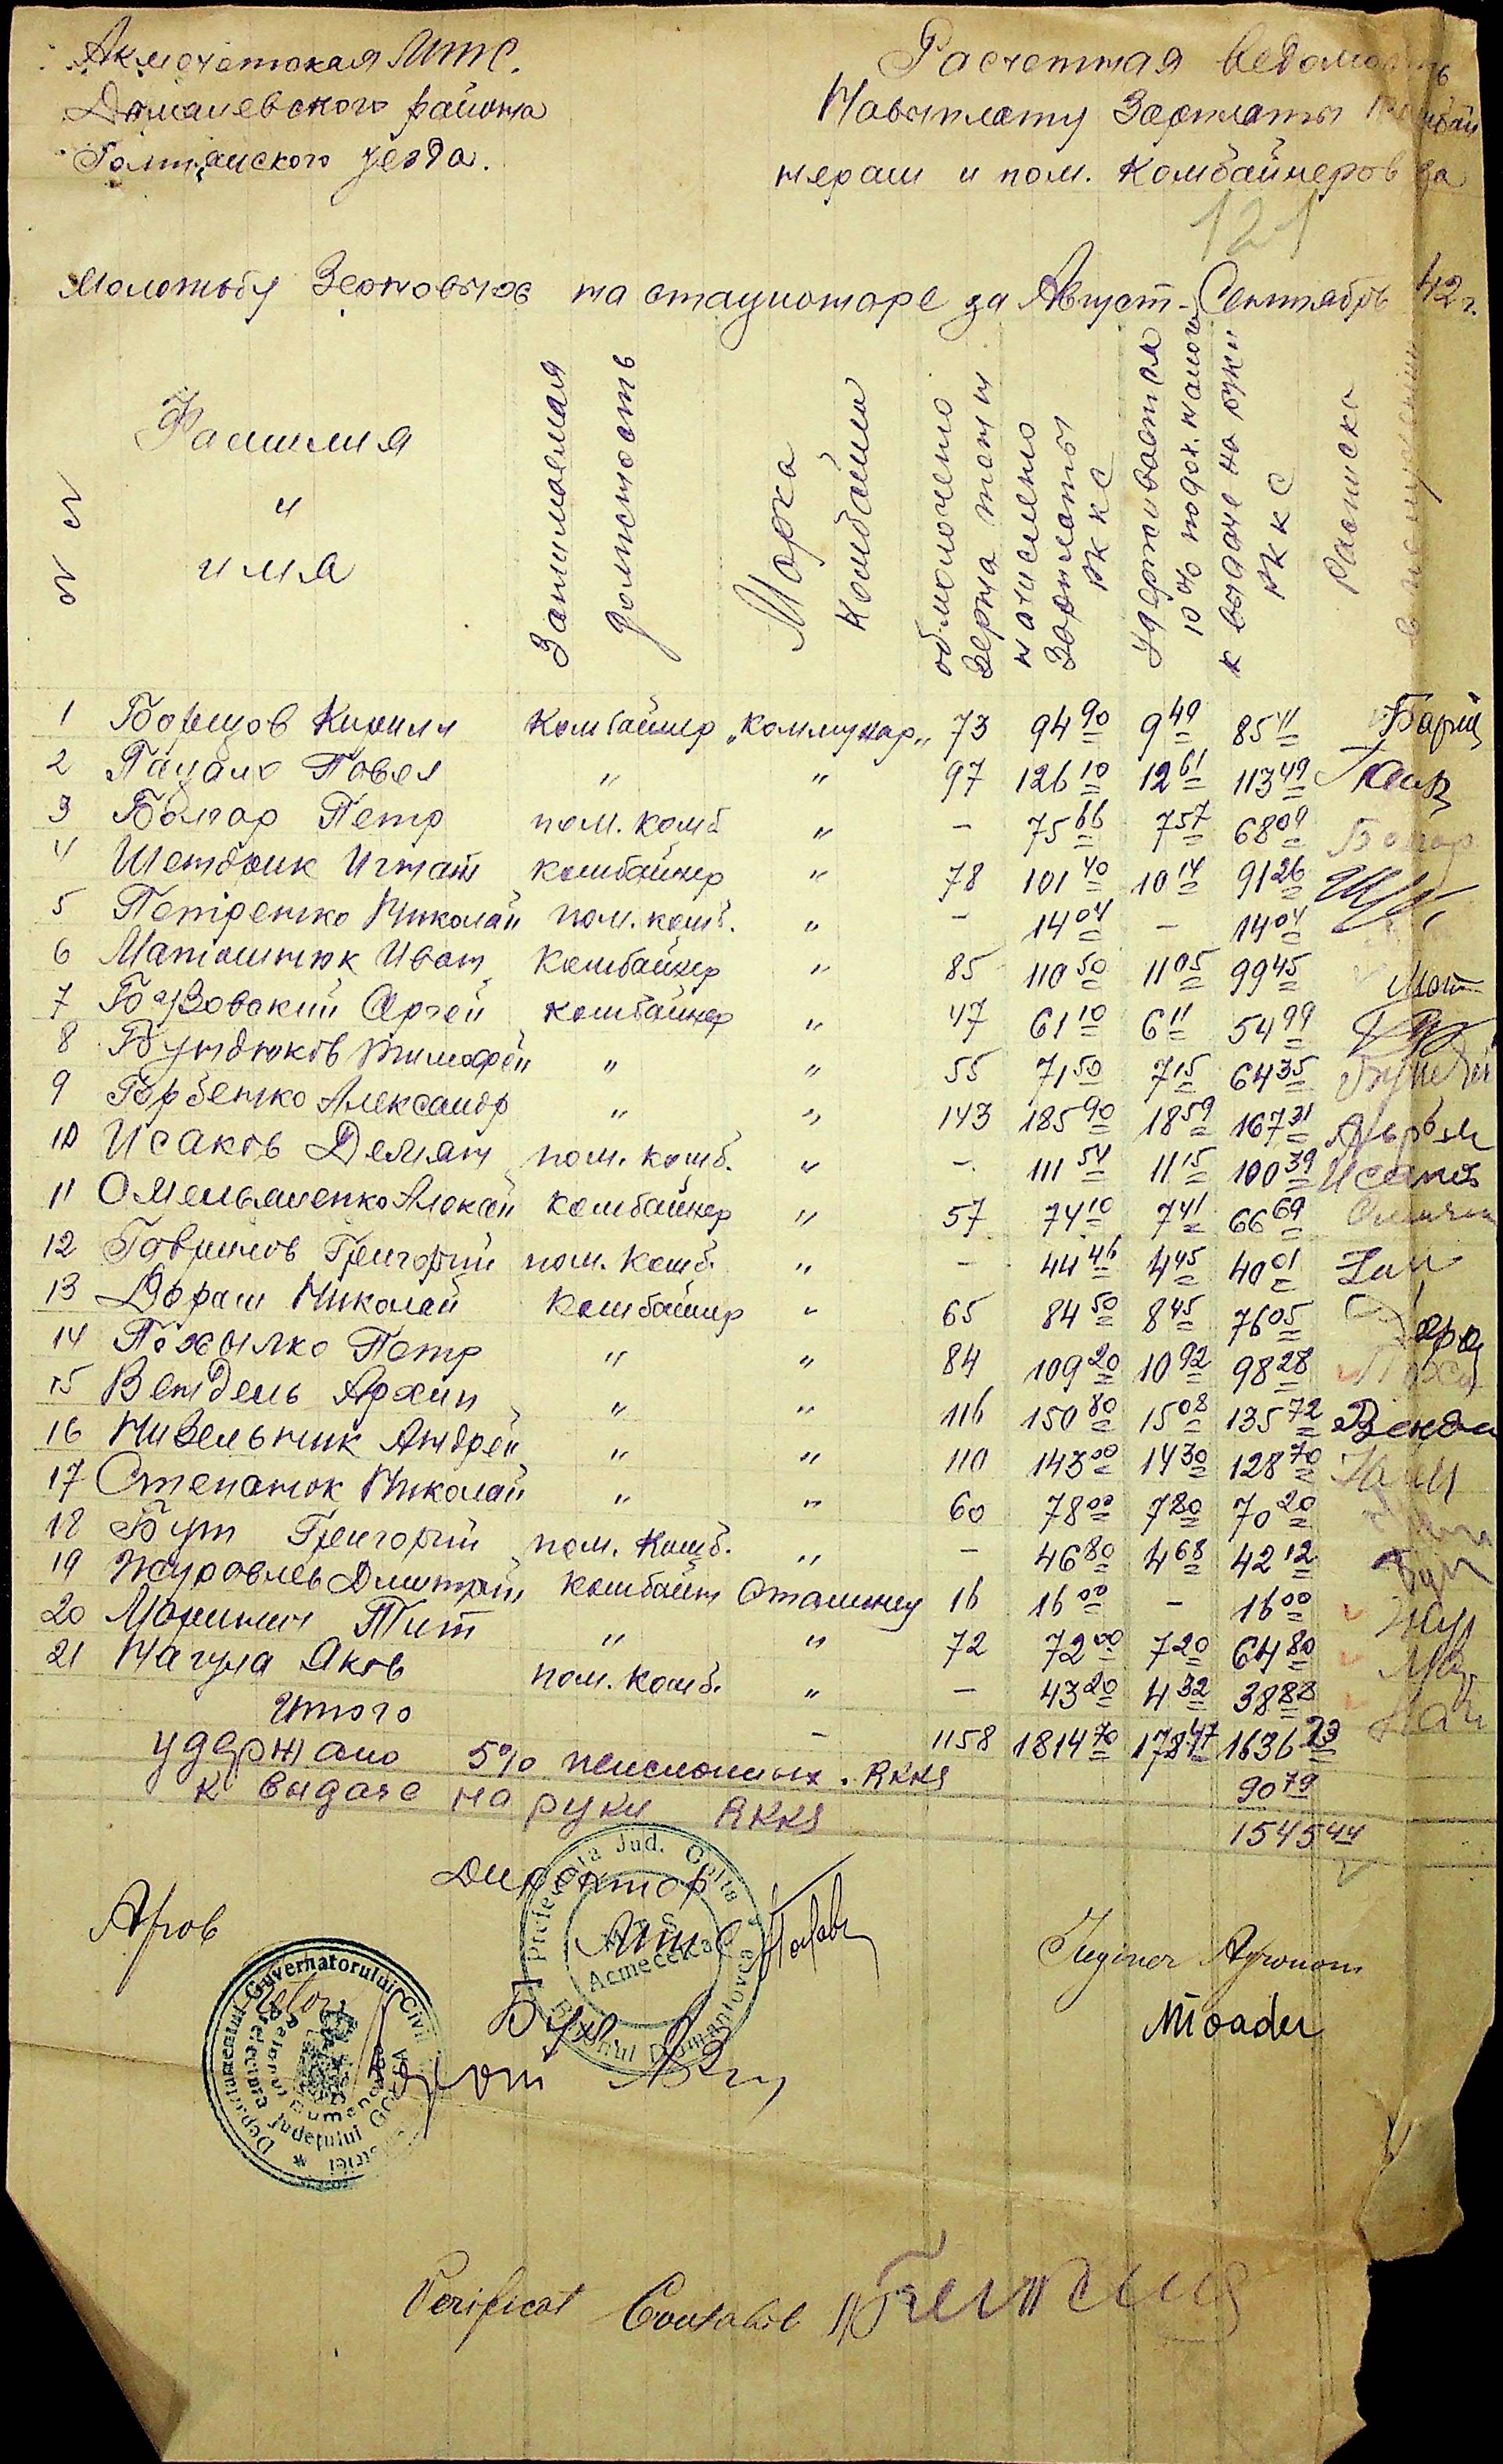 Акмечетская МТС.
Домачевского района
Голтянского уезда.
Расчетная ведомость
На выплату Зарплаты Комбай
нерам и пом. Комбайнеров за
121
Молотьбу Зерновых на стационаре за Август-Сентябрь 42 г.
№ №
Фамилия
и
имя
Занимаемая
должность
Марка
комбайна
обмолочено
Зерна тонн
начислено
Зарплаты
РККС
Удерживается
10% подох. налога
к выдаче на руки
РККС
Расписка
в получении
1 Борщов Кирилл Комбайнер „Коммунар„ 73 94 90 9 49 85 41 Барщ
2 Пацало Повел " " 97 126 10 12 61 113 49
3 Болгар Петр пом. комб " - 75 66 7 57 68 09 Болгар
4 Шетдрик Игнат комбайнер " 78 101 40 10 14 91 26
5 Петренко Николай пом. комб. " - 14 04 - 14 04
6 Матошнюк Иван Комбайнер " 85 110 50 11 05 99 45 Мат
7 Бузовский Сргей комбайнер " 47 61 10 6 11 54 99
8 Бундюков Тимофей " " 55 71 50 7 15 64 35
9 Горбенко Александр " " 143 185 90 18 59 167 31
10 Исаков Демян пом. комб. " - 111 54 11 15 100 39 Исаков
11 Омельяненко Алоксй комбайнер " 57 74 10 7 41 66 69
12 Гаврилов Григорий пом. Комб. " - 44 46 4 45 40 01
13 Дораш Николай Комбайнер " 65 84 50 8 45 76 05
14 Похылко Петр " " 84 109 20 10 92 98 28
15 Вендель Архип " " 116 150 80 15 08 135 72 Венде
16 Низельник Андрей " " 110 143 00 14 30 128 70
17 Степанюк Николай " " 60 78 00 7 80 70 20
18 Бут Григорий пом. Комб. " - 46 80 4 68 42 12 Бут
19 Журовлев Дмитрий Комбайн Сталинец 16 16 00 - 16 00 Жур
20 Маринич Тит " " 72 72 00 7 20 64 80
21 Нагула Яков пом. комб. " - 43 20 4 32 38 88
Итого - 1158 1814 70 178 47 1636 23
удержано 5% пенсионных. RKKS 90 79
к выдаче на руки RKKS 1545 44
Директор
МТС
Prefectura Jud. Golta
M.T.S.
Acmecetca
Raionul Domaniovca
Бух.
Inginer Agronom
Departamentul Guvernatorului Civil
Prefectura Judeţului Golta
Verificat Contabil